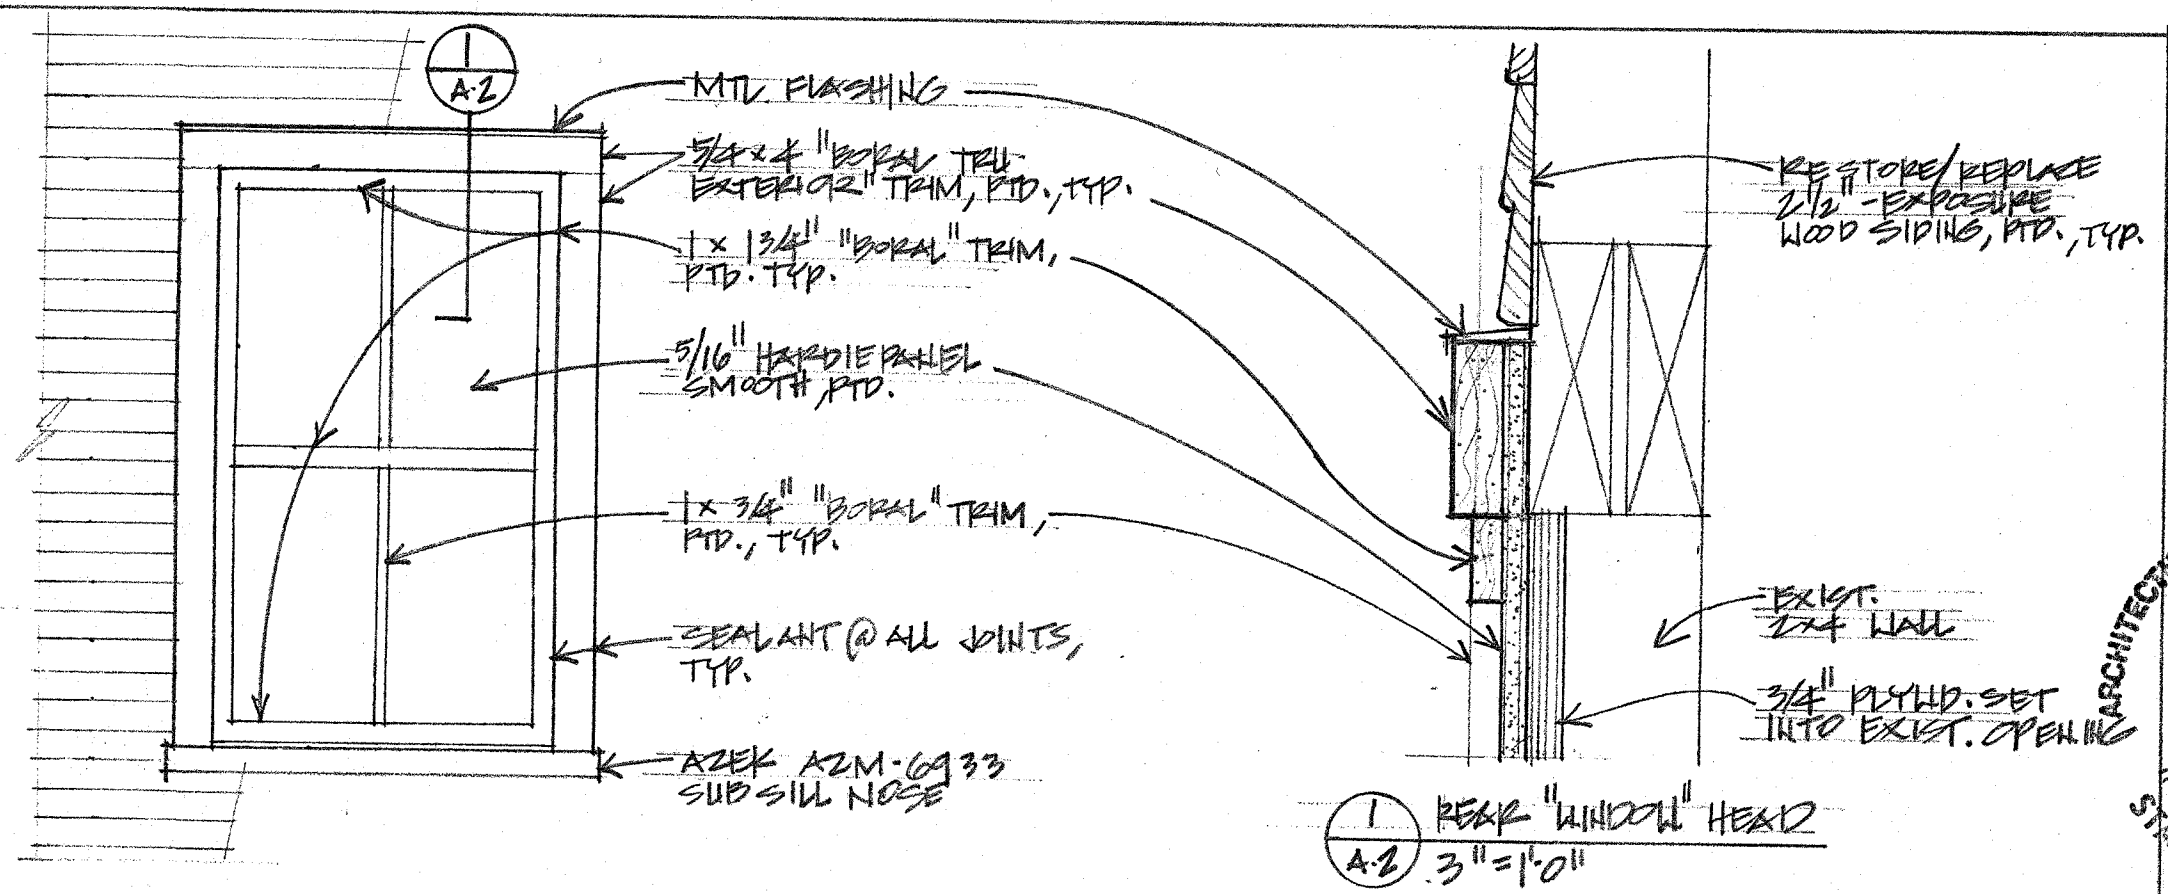 1
A-2
MTL FLASHING
5/4 x 4 "BORAL TRU-
EXTERIOR" TRIM, PTD., TYP.
1 x 1 3/4" "BORAL" TRIM,
PTD. TYP.
5/16" HARDIEPANEL
SMOOTH, PTD.
1 x 3/4" "BORAL" TRIM,
PTD., TYP.
SEALANT @ ALL JOINTS,
TYP.
AZEK AZM-6933
SUBSILL NOSE
RESTORE/REPLACE
2 1/2" - EXPOSURE
WOOD SIDING, PTD., TYP.
EXIST.
2x4 WALL
3/4" PLYWD. SET
INTO EXIST. OPENING
1
A-2
REAR "WINDOW" HEAD
3" = 1'-0"
ARCHITECT